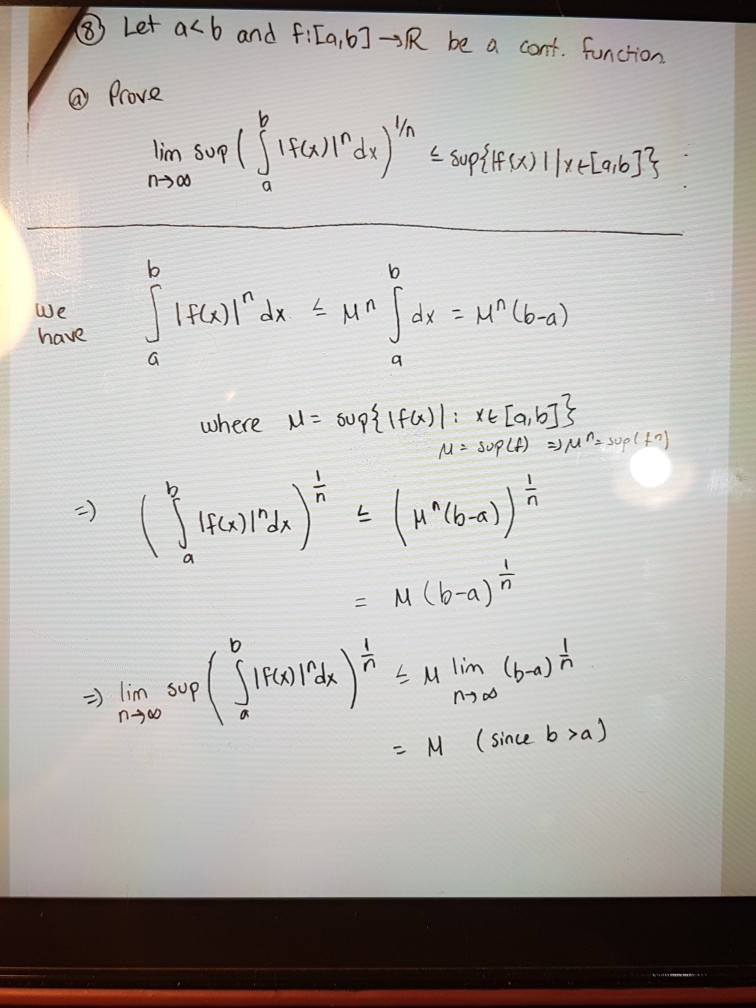 ⑧ Let a<b and f:[a,b]→ℝ be a cont. function.
ⓐ Prove
lim sup n→∞ ( ∫ₐᵇ |f(x)|ⁿ dx )^1/n ≤ sup{|f(x)| | x∈[a,b]} :
We have ∫ₐᵇ |f(x)|ⁿ dx ≤ Mⁿ ∫ₐᵇ dx = Mⁿ(b-a)
where M = sup{|f(x)| : x∈[a,b]}
M = sup(f) ⇒ Mⁿ = sup(fⁿ)
⇒ ( ∫ₐᵇ |f(x)|ⁿ dx )^1/n ≤ (Mⁿ(b-a))^1/n
= M (b-a)^1/n
⇒ lim sup n→∞ ( ∫ₐᵇ |f(x)|ⁿ dx )^1/n ≤ M lim n→∞ (b-a)^1/n
= M (since b>a)